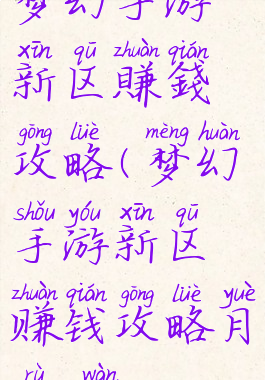 梦幻手游
xīn qū zhuàn qián
新区賺錢
gōng lüè mèng huàn
攻略(梦幻
shǒu yóu xīn qū
手游新区
zhuàn qián gōng lüè yuè
赚钱攻略月
rù wàn